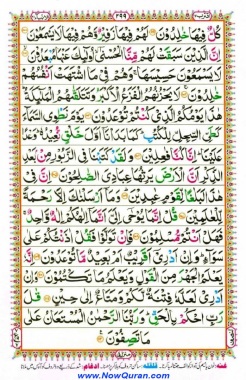 ٢٩٩
كُلٌّ فِيْهَا خٰلِدُوْنَ لَهُمْ فِيْهَا زَفِيْرٌ وَّهُمْ فِيْهَا لَا يَسْمَعُوْنَ
اِنَّ الَّذِيْنَ سَبَقَتْ لَهُمْ مِّنَّا الْحُسْنٰٓى اُولٰٓئِكَ عَنْهَا مُبْعَدُوْنَ
لَا يَسْمَعُوْنَ حَسِيْسَهَا وَهُمْ فِيْ مَا اشْتَهَتْ اَنْفُسُهُمْ
خٰلِدُوْنَ لَا يَحْزُنُهُمُ الْفَزَعُ الْاَكْبَرُ وَتَتَلَقّٰىهُمُ الْمَلٰٓئِكَةُ
هٰذَا يَوْمُكُمُ الَّذِيْ كُنْتُمْ تُوْعَدُوْنَ يَوْمَ نَطْوِى السَّمَآءَ
كَطَيِّ السِّجِلِّ لِلْكُتُبِ كَمَا بَدَاْنَآ اَوَّلَ خَلْقٍ نُّعِيْدُهٗ وَعْدًا
عَلَيْنَا اِنَّا كُنَّا فٰعِلِيْنَ وَلَقَدْ كَتَبْنَا فِى الزَّبُوْرِ مِنْۢ بَعْدِ
الذِّكْرِ اَنَّ الْاَرْضَ يَرِثُهَا عِبَادِيَ الصّٰلِحُوْنَ اِنَّ فِيْ
هٰذَا لَبَلٰغًا لِّقَوْمٍ عٰبِدِيْنَ وَمَآ اَرْسَلْنٰكَ اِلَّا رَحْمَةً
لِّلْعٰلَمِيْنَ قُلْ اِنَّمَا يُوْحٰٓى اِلَيَّ اَنَّمَآ اِلٰهُكُمْ اِلٰهٌ وَّاحِدٌ
فَهَلْ اَنْتُمْ مُّسْلِمُوْنَ فَاِنْ تَوَلَّوْا فَقُلْ اٰذَنْتُكُمْ عَلٰى
سَوَآءٍ وَاِنْ اَدْرِيْٓ اَقَرِيْبٌ اَمْ بَعِيْدٌ مَّا تُوْعَدُوْنَ اِنَّهٗ
يَعْلَمُ الْجَهْرَ مِنَ الْقَوْلِ وَيَعْلَمُ مَا تَكْتُمُوْنَ وَاِنْ
اَدْرِيْ لَعَلَّهٗ فِتْنَةٌ لَّكُمْ وَمَتَاعٌ اِلٰى حِيْنٍ قٰلَ
رَبِّ احْكُمْ بِالْحَقِّ وَرَبُّنَا الرَّحْمٰنُ الْمُسْتَعَانُ عَلٰى
مَا تَصِفُوْنَ
www.NowQuran.com